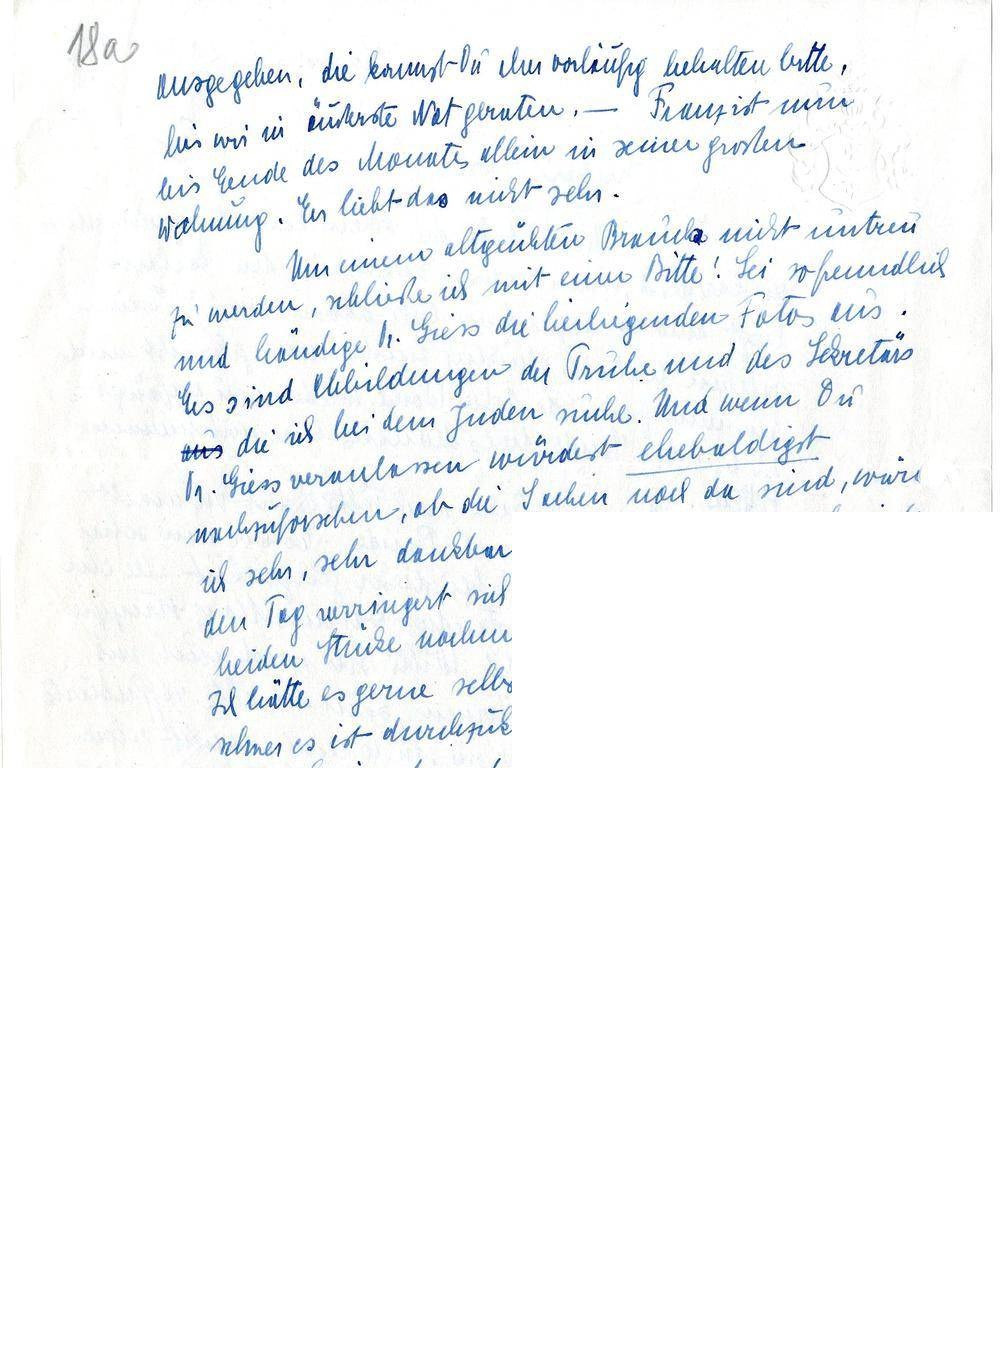 18a
ausgegeben, die kannst Du aber vorläufig behalten bitte,
bis wir in äußerste Not geraten. — Franz ist nun
bis Ende des Monates allein in seiner großen
Wohnung. Er liebt das nicht sehr.
Um einem altgeübten Brauche nicht untreu
zu werden, schließe ich mit einer Bitte! Sei so freundlich
und händige Dr. Giess die beiliegenden Fotos aus.
Es sind Abbildungen der Truhe und des Sekretärs
aus die ich bei dem Juden suche. Und wenn Du
Dr. Giess veranlassen würdest ehebaldigst
nachzuforschen, ob die Sachen noch da sind, wäre
ich sehr, sehr dankbar
den Tag verringert sich
beiden Stücke
Ich hätte es gerne selbs
schwer es ist durchzuk